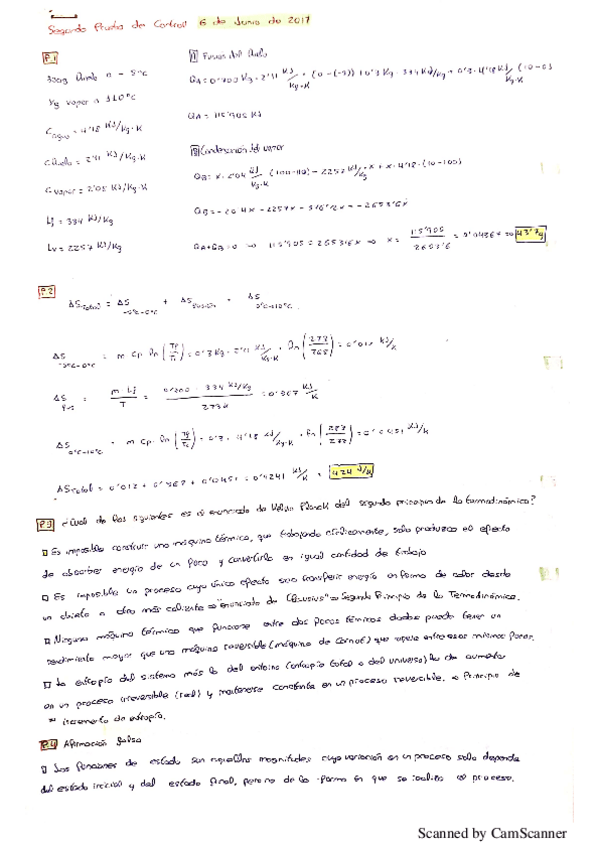 Segunda Prueba de Control 6 de Junio de 2017
P.1
300g hielo a -5ºC
Kg vapor a 110ºC
Cagua = 4'18 KJ/Kg·K
Chielo = 2'11 KJ/Kg·K
Cvapor = 2'05 KJ/Kg·K
Lf = 334 KJ/Kg
Lv = 2257 KJ/Kg
1 Fusión del hielo
QA = 113'905 KJ
2 Condensación del vapor
(100-110) - 2257 KJ/Kg · x + x · 4'18 · (10-100)
QA+QB=0
43'7g
P.2
ΔS total = ΔS -5ºC-0ºC + ΔS fusión + ΔS 0ºC-10ºC
ΔS -5ºC-0ºC = m Cp ln (TF/Ti) = 0'3 Kg · 2'11 KJ/Kg·K · ln = 0'012 KJ/K
ΔS = m · Lf / T = 0'300 · 334 KJ/Kg / 273K = 0'367 KJ/K
ΔS 0ºC-10ºC = m Cp ln = 0'3 · 4'18 KJ/Kg·K · ln = 0'0451 KJ/K
ΔS total = 0'012 + 0'367 + 0'0451 = 0'4241 KJ/K = 424 J/K
P.3 ¿Cuál de los siguientes es el enunciado de Kelvin Planck del segundo principio de la termodinámica?
Es imposible construir una máquina térmica, que trabajando cíclicamente, solo produzca el efecto
de absorber energía de un foco y convertirlo en igual cantidad de trabajo
Es imposible un proceso cuyo único efecto sea transferir energía en forma de calor desde
un objeto a otro más caliente → enunciado de "Clausius" → Segundo Principio de la Termodinámica.
Ninguna máquina térmica que funcione entre dos focos térmicos dados puede tener un
rendimiento mayor que una máquina reversible (máquina de Carnot) que opere entre esos mismos focos.
La entropía del sistema más la del entorno (entropía total o del universo) ha de aumentar
en un proceso irreversible (real) y mantenerse constante en un proceso reversible. → Principio de
incremento de entropía.
P.4 Afirmación falsa
Las funciones de estado son aquellas magnitudes cuya variación en un proceso solo depende
del estado inicial y del estado final, pero no de la forma en que se realiza el proceso.
Scanned by CamScanner